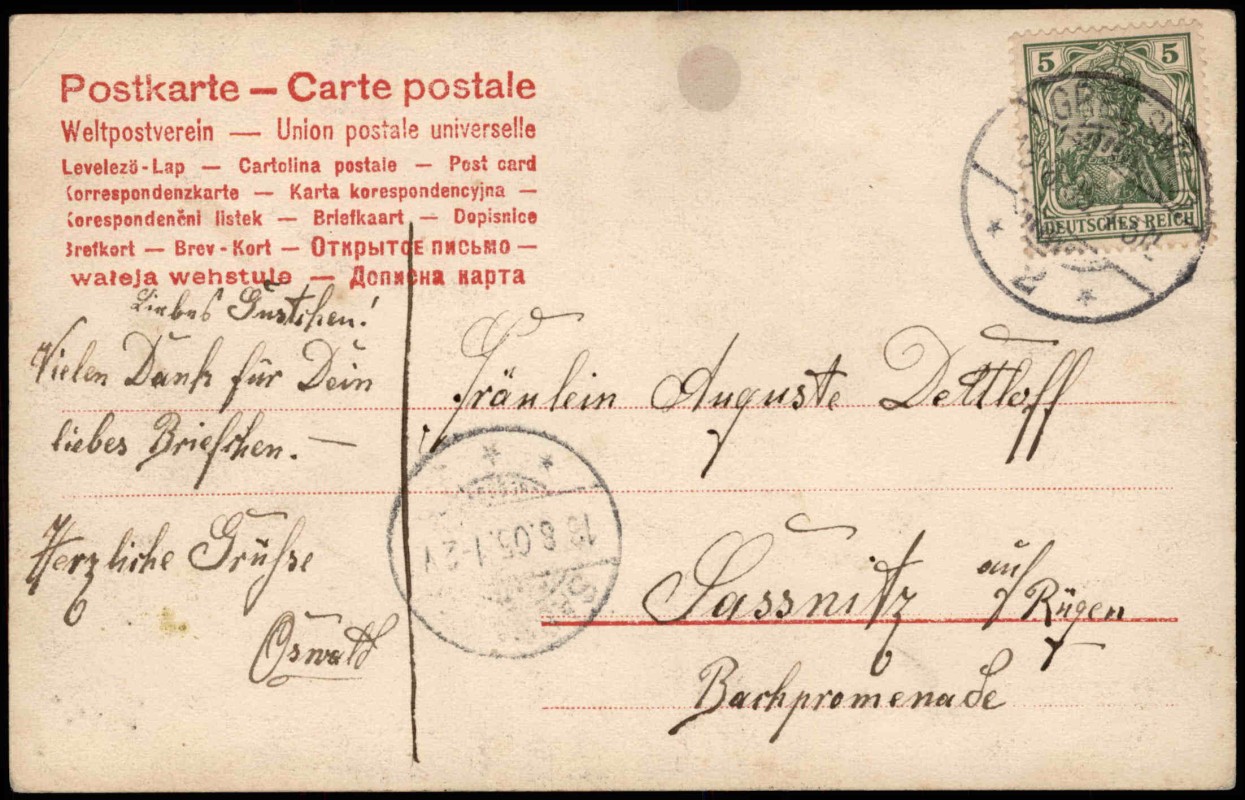 Postkarte — Carte postale
Weltpostverein — Union postale universelle
Levelezö-Lap — Cartolina postale — Post card
Korrespondenzkarte — Karta korespondencyjna —
Korespondenčni listek — Briefkaart — Dopisnice
Brefkort — Brev-Kort — Открытое письмо —
wateja wehstule — Дописна карта
5 5
DEUTSCHES REICH
Liebes Gustchen!
Vielen Dank für Dein
liebes Briefchen. —
Herzliche Grüße
Oswald
Fräulein Auguste Dettloff
Sassnitz auf Rügen
Bachpromenade
13.8.05.1-2V